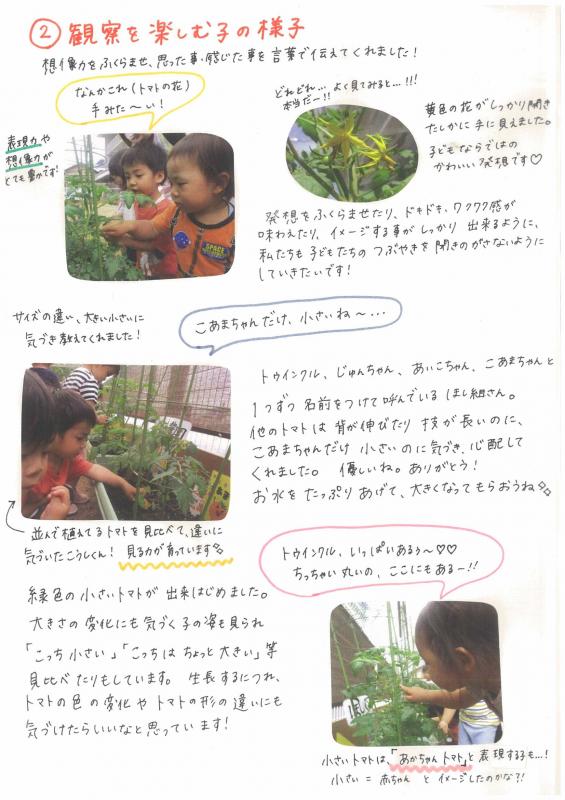 ② 観察を楽しむ子の様子
想像力をふくらませ、思った事・感じた事を言葉で伝えてくれました！
なんかこれ（トマトの花）
手みた〜い！
どれどれ…よく見てみると…!!!
本当だー!!
表現力や
想像力が
とても豊かです！
黄色の花がしっかり開き
たしかに手に見えました。
子どもならではの
かわいい発想です♡
SPACE
発想をふくらませたり、ドキドキ、ワクワク感が
味わえたり、イメージする事がしっかり出来るように、
私たちも子どもたちのつぶやきを聞きのがさないように
していきたいです！
サイズの違い、大きい小さいに
気づき教えてくれました！
こあまちゃんだけ、小さいね〜…
トゥインクル、じゅんちゃん、あいこちゃん、こあまちゃんと
1つずつ名前をつけて呼んでいるほし組さん。
他のトマトは背が伸びたり枝が長いのに、
こあまちゃんだけ小さいのに気づき、心配して
くれました。優しいね。ありがとう！
お水をたっぷりあげて、大きくなってもらおうね
並んで植えてるトマトを見比べて、違いに
気づいたこうしくん！見る力が育っています
トゥインクル、いっぱいあるぅ〜♡♡
ちっちゃい丸いの、ここにもあるー!!
緑色の小さいトマトが出来はじめました。
大きさの変化にも気づく子の姿も見られ
「こっち小さい」「こっちはちょっと大きい」等
見比べたりもしています。生長するにつれ、
トマトの色の変化やトマトの形の違いにも
気づけたらいいなと思っています！
小さいトマトは、「あかちゃんトマト」と表現する子も…！
小さい＝赤ちゃんとイメージしたのかな?!